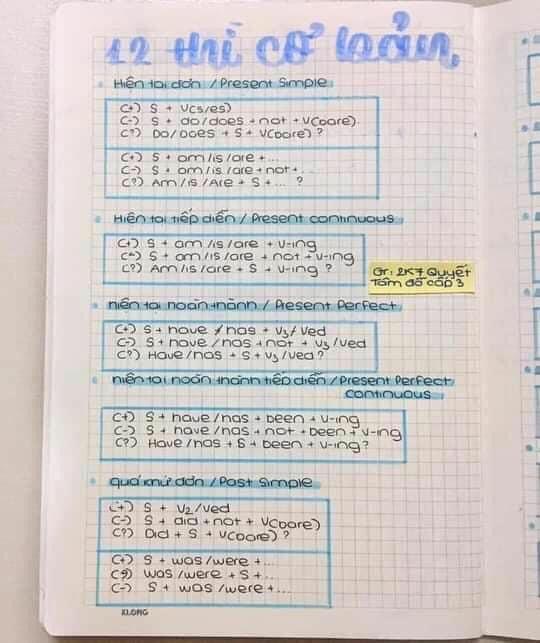 12 thì cơ bản
Hiện tại đơn / Present Simple
(+) S + V(s/es)
(-) S + do/does + not + V(bare)
(?) Do/Does + S + V(bare) ?
(+) S + am/is/are + ...
(-) S + am/is/are + not + ..
(?) Am/is/Are + S + ... ?
Hiện tại tiếp diễn / Present continuous
(+) S + am/is/are + V-ing
(-) S + am/is/are + not + V-ing
(?) Am/is/are + S + V-ing ?
Gr: 2K7 Quyết
Tâm đỗ cấp 3
Hiện tại hoàn thành / Present Perfect
(+) S + have / has + V3/Ved
(-) S + have/has + not + V3/Ved
(?) Have/has + S + V3/Ved ?
Hiện tại hoàn thành tiếp diễn / Present Perfect
continuous
(+) S + have/has + been + V-ing
(-) S + have/has + not + been + V-ing
(?) Have/has + S + been + V-ing ?
quá khứ đơn / Past Simple
(+) S + V2/Ved
(-) S + did + not + V(bare)
(?) Did + S + V(bare) ?
(+) S + was/were + ...
(?) was/were + S + ..
(-) S + was/were + ...
KLONG